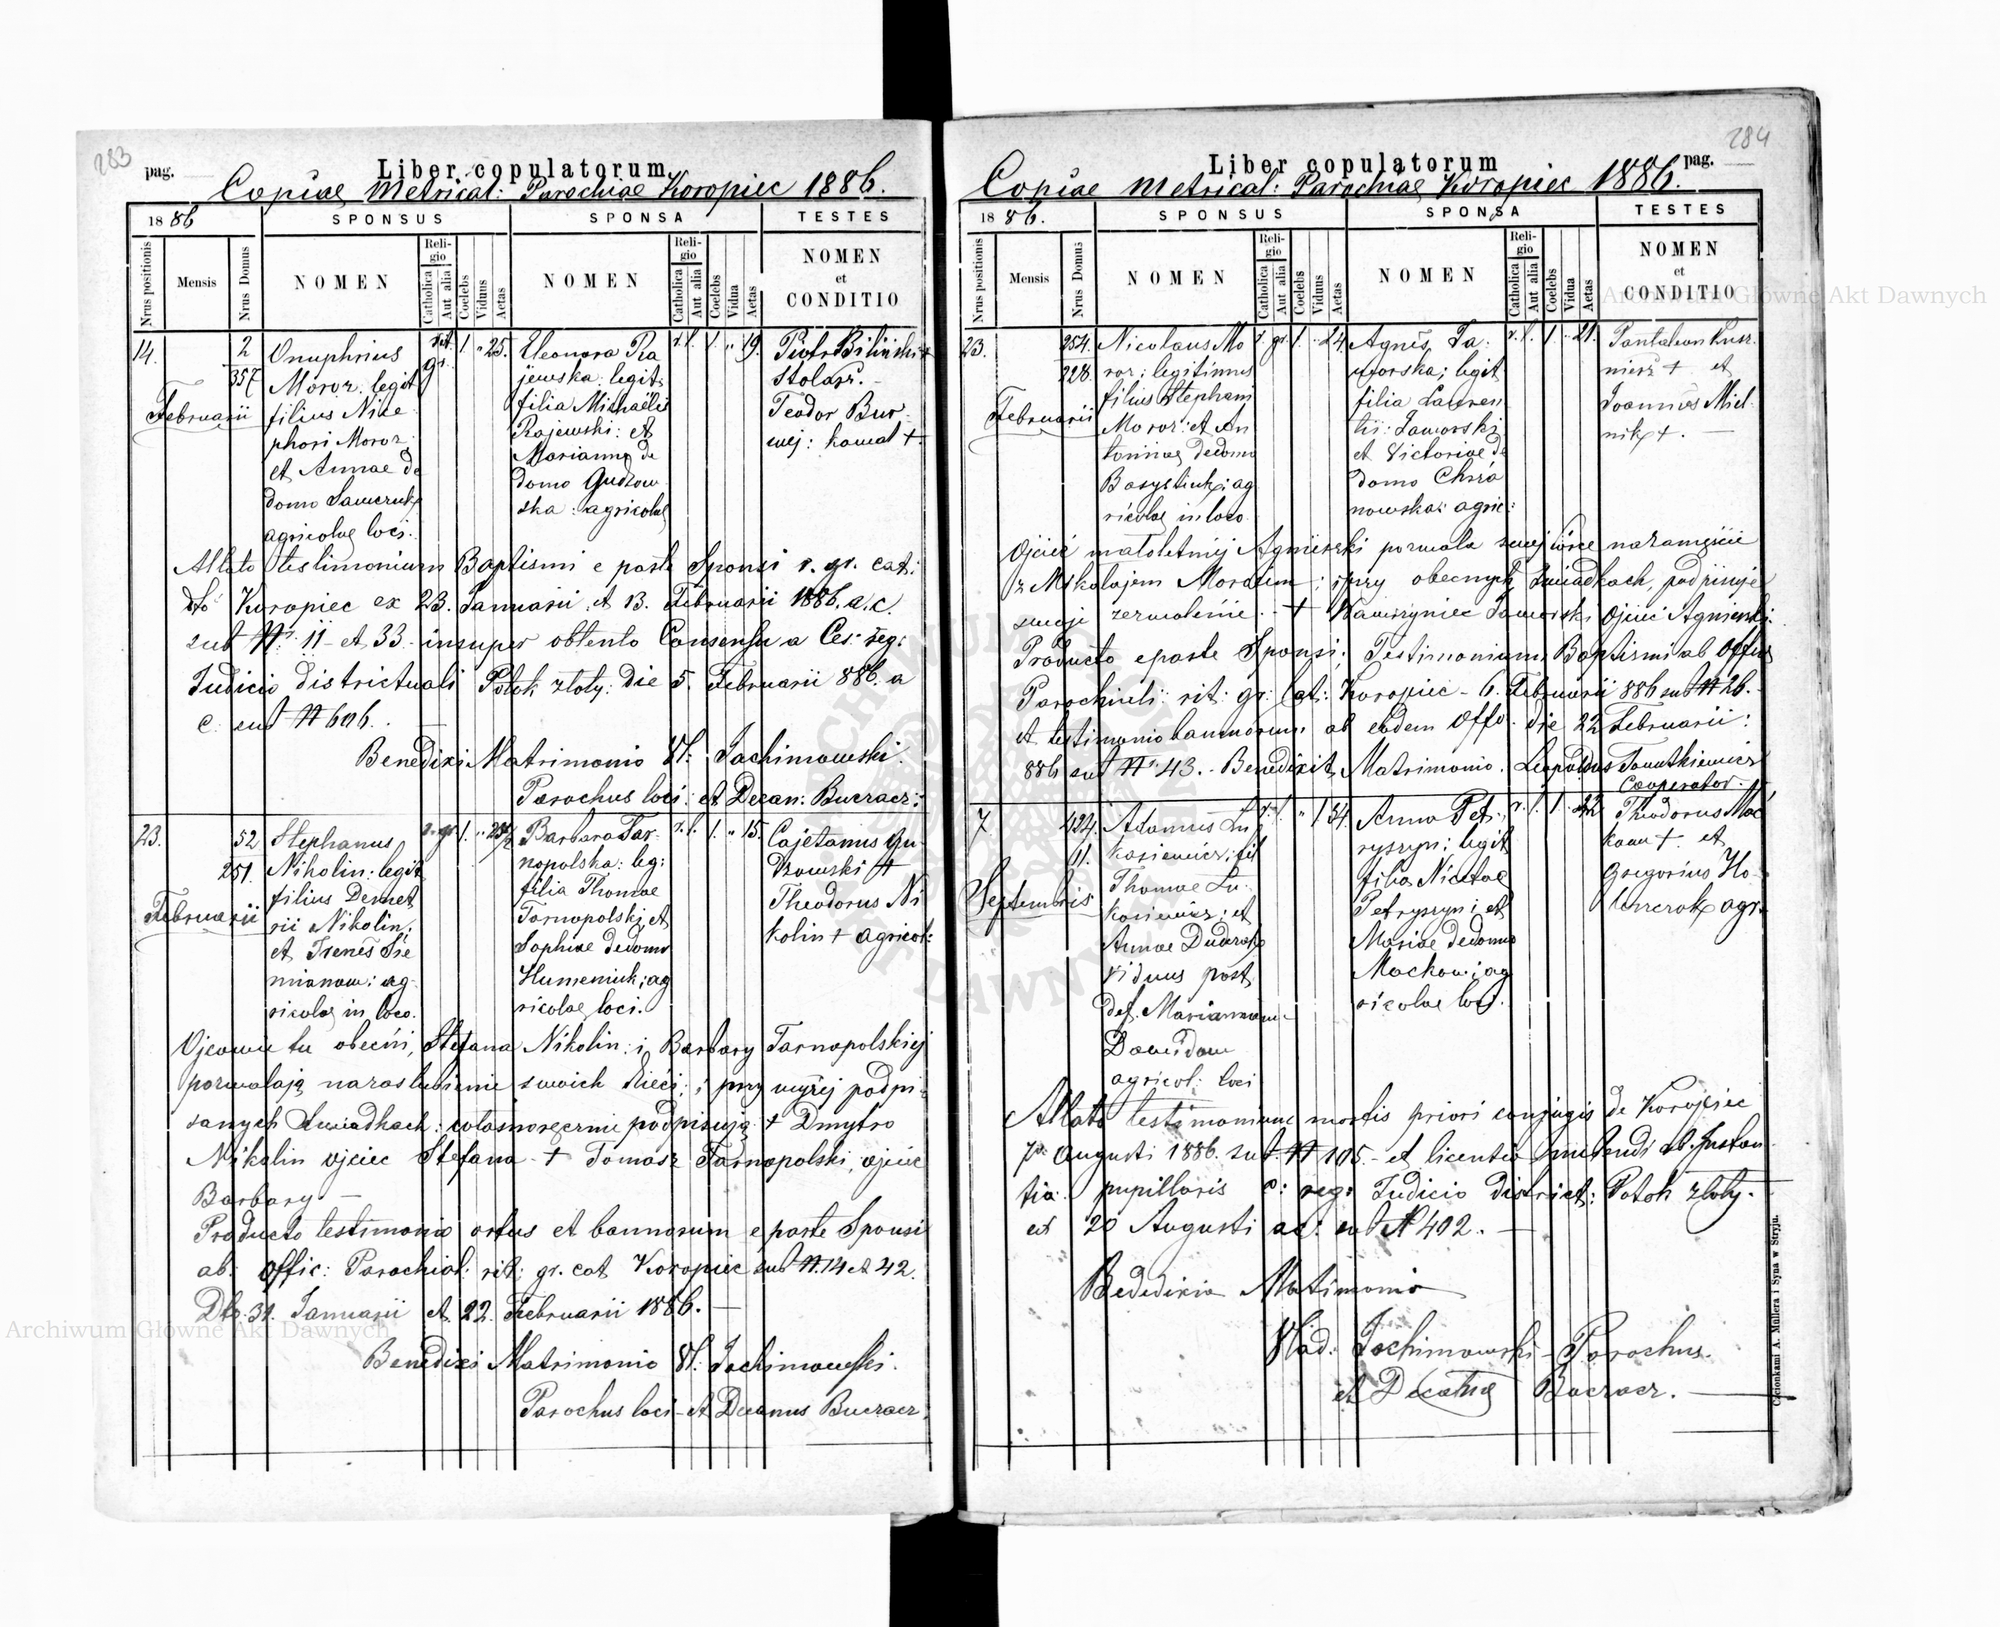 283
pag.
Liber copulatorum
Copiae Metrical: Parochiae Koropiec 1886.
1886
SPONSUS
SPONSA
TESTES
Nrus positionis
Mensis
Nrus Domus
NOMEN
Religio
Catholica
Aut alia
Coelebs
Viduus
Aetas
NOMEN
Religio
Catholica
Aut alia
Coelebs
Vidua
Aetas
NOMEN
et
CONDITIO
14.
Februarii
2
357
Onuphrius
Moroz: legit
filius Nice
phori Moroz
et Annae de
domo Sawczuk
agricolae loci.
rit. gr.
1. " 25.
Eleonora Ra
jewska: legit:
filia Michaëlis
Rajewski: et
Marianna de
domo Gudzow
ska: agricolae
r. l. 1. " 19.
Piotr Biliński +
Stolarz.
Teodor Bur
: kowal +
Allato testimonium Baptismi e parte Sponsi r. gr. cat:
dto Koropiec ex 23. Januarii et 13. Februarii 1886. a. c.
sub N: 11 et 33 insuper obtento Consensu a Ces: reg:
Judicio districtuali Potok zloty: die 5. Februarii 886. a
c. sub N 606.
Benedixi Matrimonio Wł: Jachimowski.
Parochus loci et Decan: Buczacz:
23.
Februarii
52
251.
Stephanus
Nikolin: legit
filius Demet
rii Nikolin;
et Irenes Sie
mianow: ag
ricolae in loco.
r. gr. 1. "
Barbara Tar
nopolska: leg:
filia Thomae
Tarnopolski et
Sophiae de domo
Humeniuk; ag
ricolae loci.
r. l. 1. " 15.
Cajetanus Gu
dzowski +
Theodorus Ni
kolin + agricol:
Ojcowie tu obecni, Stefana Nikolin: i Barbary Tarnopolskiej
pozwalają na zaslubienie swoich dzieci; i przy wyżej podpi
sanych Swiadkach: własnoręcznie podpisują + Dmytro
Nikolin ojciec Stefana + Tomasz Tarnopolski, ojciec
Barbary
Producto testimonio ortus et bannorum e parte Sponsi
ab. Offic: Parochial: rit: gr. cat Koropiec sub N. 14 et 42.
Dto. 31. Januarii et 22. Februarii 1886.
Benedixi Matrimonio Wł: Jachimowski.
Parochus loci et Decanus Buczacz.
284
pag.
Liber copulatorum
Copiae Metrical: Parochiae Koropiec 1886.
1886.
SPONSUS
SPONSA
TESTES
Nrus positionis
Mensis
Nrus Domus
NOMEN
Religio
Catholica
Aut alia
Coelebs
Viduus
Aetas
NOMEN
Religio
Catholica
Aut alia
Coelebs
Vidua
Aetas
NOMEN
et
CONDITIO
23.
Februarii
254.
228.
Nicolaus Mo
roz; legitimus
filius Stephani
Moroz: et An
toninae de domo
Basystiuk; ag
ricolae in loco
r. gr. 1. " 24.
Agnes Ja:
worska; legit
filia Lauren
tii: Jaworski
et Victoriae de
domo Chrza
nowska: agric:
r. l. 1. " 21.
Pantaleon Kusz
nierz + et
Joannes Miel
nik +.
Ojciec małoletniej Agnieszki pozwala swej córce na zamęście
z Mikołajem Morozem; i przy obecnych Swiadkach, podpisuje
swoje zezwolenie + Wawrzyniec Jaworski Ojciec Agnieszki.
Producto e parte Sponsi; Testimonium Baptismi ab Offio
Parochiali: rit: gr: Cat: Koropiec - 6. Februarii 886 sub N 26.
et testimonio bannorum ab eodem Offo. die 22 Februarii:
886 sub N: 43. - Benedixit Matrimonio. Leopoldus
Cooperator.
7.
Septembris
424.
11.
Adamus Lu
kasiewicz; fil
Thomae Lu
kasiewicz; et
Annae Duderak
viduus post
def. Mariannam
Dawidow
agricol: loci
r. l. " 1 34.
Anna Pet
ryszyn; legit
filia Nicetae
Petryszyn; et
Mariae de domo
Mackow; ag
ricolae loci.
r. l. 1. 22
Theodorus Moć
kow +. et
Gregorius Ho
agr.
Allato testimonium mortis priori conjugis de Koropiec
7 Augusti 1886. sub. N 105. - et licentia ab. Instan
tia: pupillaris c: reg: Judicio district: Potok zloty.
ex 20 Augusti ac: sub N 402.
Bededixio Matimonio
Wlad: Jachimowski - Parochus.
et Decanus Buczacz.
Czcionkami A. Müllera i Syna w Stryju.
Archiwum Główne Akt Dawnych
Archiwum Główne Akt Dawnych